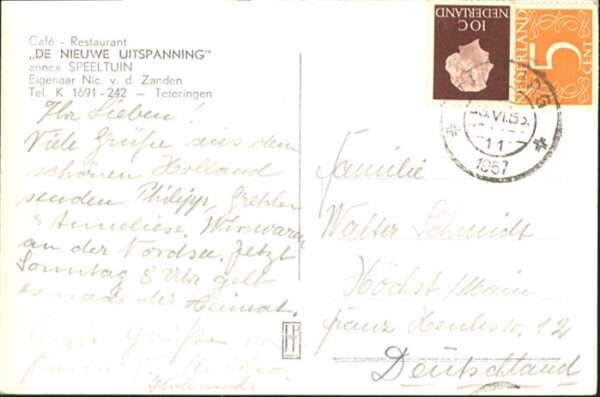 Café - Restaurant
„DE NIEUWE UITSPANNING”
annex SPEELTUIN
Eigenaar Nic. v. d. Zanden
Tel. K 1691-242 – Teteringen
Ihr Lieben!
Viele Grüße aus dem
schönen Holland
senden Philipp, Gretchen
& Anneliese. Wir waren
an der Nordsee. Jetzt
Sonntag 8 Uhr geht
es nach der Heimat.
Grüße
10 C
NEDERLAND
NEDERLAND
5
CENT
VI.
11
1957
Familie
Walter Schmidt
Höchst/Main
Deutschland